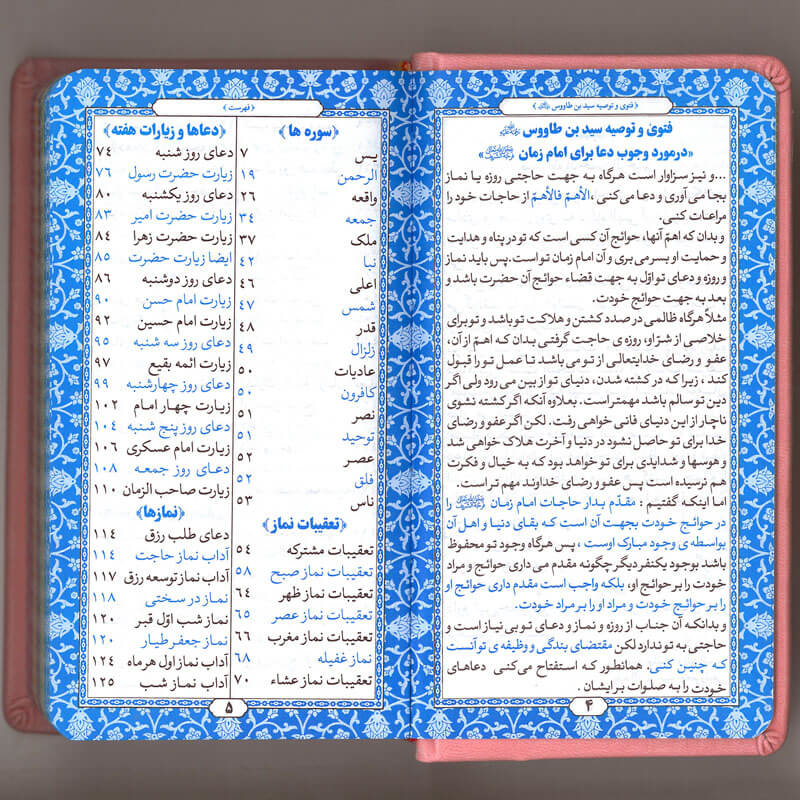 ﴿ فتوی و توصیه سید بن طاووس ﴾
فتوی و توصیه سید بن طاووس
«درمورد وجوب دعا برای امام زمان»
...و نیز سزاوار است هرگاه به جهت حاجتی روزه یا نماز
بجا می‌آوری و دعا می‌کنی، الأهمّ فالأهمّ از حاجات خود را
مراعات کنی.
و بدان که اهمّ آنها، حوائج آن کسی است که تو در پناه و هدایت
و حمایت او بسر می‌بری و آن امام زمان تو است. پس باید نماز
و روزه و دعای تو اوّل به جهت قضاء حوائج آن حضرت باشد و
بعد به جهت حوائج خودت.
مثلاً هرگاه ظالمی در صدد کشتن و هلاکت تو باشد و تو برای
خلاصی از شرّ او، روزه‌ی حاجت گرفتی بدان که اهمّ از آن،
عفو و رضای خدایتعالی از تو می باشد تا عمل تو را قبول
کند، زیرا که در کشته شدن، دنیای تو از بین می رود ولی اگر
دین تو سالم باشد مهمتر است. بعلاوه آنکه اگر کشته نشوی
ناچار از این دنیای فانی خواهی رفت. لکن اگر عفو و رضای
خدا برای تو حاصل نشود در دنیا و آخرت هلاک خواهی شد
و هوسها و شدایدی برای تو خواهد بود که به خیال و فکرت
هم نرسیده است پس عفو و رضای خداوند مهم تر است.
اما اینکه گفتیم: مقدّم بدار حاجات امام زمان را
در حوائج خودت بجهت آن است که بقای دنیا و اهل آن
بواسطه‌ی وجود مبارک اوست، پس هرگاه وجود تو محفوظ
باشد بوجود یکنفر دیگر چگونه مقدم می داری حوائج و مراد
خودت را بر حوائج او، بلکه واجب است مقدم داری حوائج او
را بر حوائج خودت و مراد او را بر مراد خودت.
و بدانکه آن جناب از روزه و نماز و دعای تو بی نیاز است و
حاجتی به تو ندارد لکن مقتضای بندگی و وظیفه‌ی تو آنست
که چنین کنی. همانطور که استفتاح می‌کنی دعاهای
خودت را به صلوات برایشان.
۴
﴿ فهرست ﴾
﴿سوره ها﴾
یس ۷
الرحمن ۱۹
واقعه ۲۶
جمعه ۳۴
ملک ۳۷
نبا ۴۲
اعلی ۴۶
شمس ۴۷
قدر ۴۸
زلزال ۴۹
عادیات ۵۰
کافرون ۵۰
نصر ۵۱
توحید ۵۱
عصر ۵۲
فلق ۵۲
ناس ۵۳
﴿تعقیبات نماز﴾
تعقیبات مشترکه ۵۴
تعقیبات نماز صبح ۵۸
تعقیبات نماز ظهر ۶۴
تعقیبات نماز عصر ۶۵
تعقیبات نماز مغرب ۶۶
نماز غفیله ۶۸
تعقیبات نماز عشاء ۷۰
﴿دعاها و زیارات هفته﴾
دعای روز شنبه ۷۴
زیارت حضرت رسول ۷۶
دعای روز یکشنبه ۸۰
زیارت حضرت امیر ۸۳
زیارت حضرت زهرا ۸۴
ایضا زیارت حضرت ۸۵
دعای روز دوشنبه ۸۶
زیارت امام حسن ۹۰
زیارت امام حسین ۹۲
دعای روز سه شنبه ۹۵
زیارت ائمه بقیع ۹۷
دعای روز چهارشنبه ۹۹
زیارت چهار امام ۱۰۲
دعای روز پنج شنبه ۱۰۴
زیارت امام عسکری ۱۰۶
دعای روز جمعه ۱۰۸
زیارت صاحب الزمان ۱۱۰
﴿نمازها﴾
دعای طلب رزق ۱۱۴
آداب نماز حاجت ۱۱۴
آداب نماز توسعه رزق ۱۱۷
نماز در سختی ۱۱۸
نماز شب اوّل قبر ۱۲۰
نماز جعفر طیار ۱۲۰
آداب نماز اول هر ماه ۱۲۴
آداب نماز شب ۱۲۵
۵